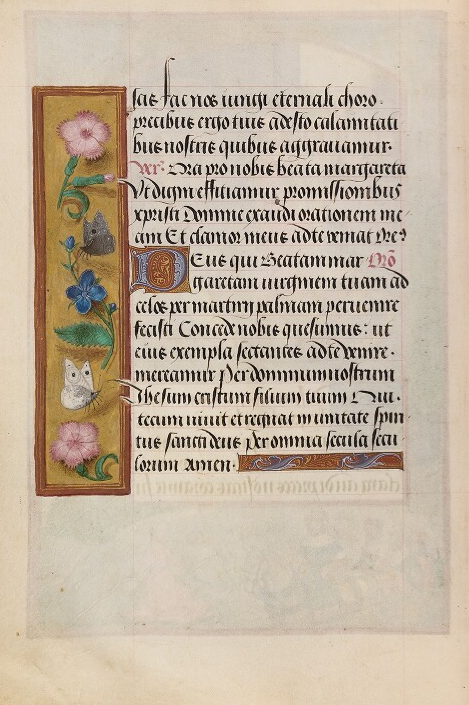 scis fac nos iungi eternali choro.
precibus ergo tuis adesto calamitati
bus nostris quibus aggrauamur.
Ver. Ora pro nobis beata margareta
Vt digni efficiamur promissionibus
xpristi Domine exaudi orationem me
am Et clamor meus ad te veniat Ore9
DEus qui Beatam mar Orõ
garetam uirginem tuam ad
celos per martyrij palmam peruenire
fecisti Concede nobis quesumus: ut
eius exempla sectantes ad te venire.
mereamur Per dominum nostrum
Jhesum cristum filium tuum Qui.
tecum uiuit et regnat in unitate spiri
tus sancti deus Per omnia secula secu
lorum Amen.